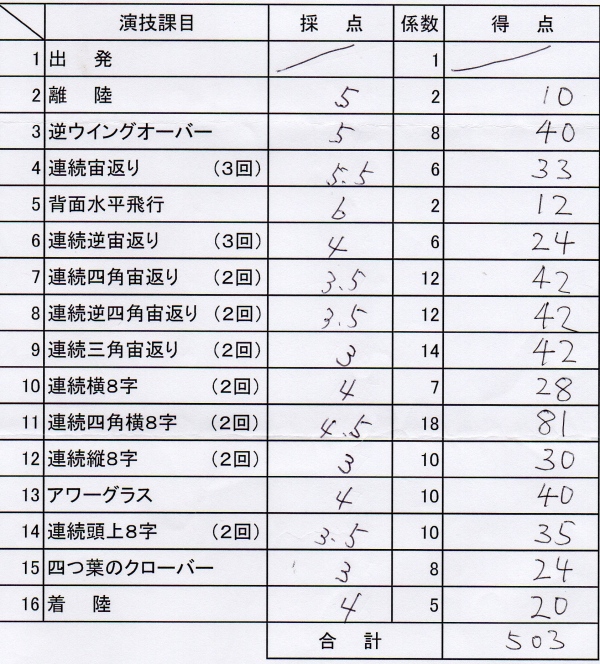 演技課目 採点 係数 得点
1 出発 1
2 離陸 5 2 10
3 逆ウイングオーバー 5 8 40
4 連続宙返り (3回) 5.5 6 33
5 背面水平飛行 6 2 12
6 連続逆宙返り (3回) 4 6 24
7 連続四角宙返り (2回) 3.5 12 42
8 連続逆四角宙返り (2回) 3.5 12 42
9 連続三角宙返り (2回) 3 14 42
10 連続横8字 (2回) 4 7 28
11 連続四角横8字 (2回) 4.5 18 81
12 連続縦8字 (2回) 3 10 30
13 アワーグラス 4 10 40
14 連続頭上8字 (2回) 3.5 10 35
15 四つ葉のクローバー 3 8 24
16 着陸 4 5 20
合計 503